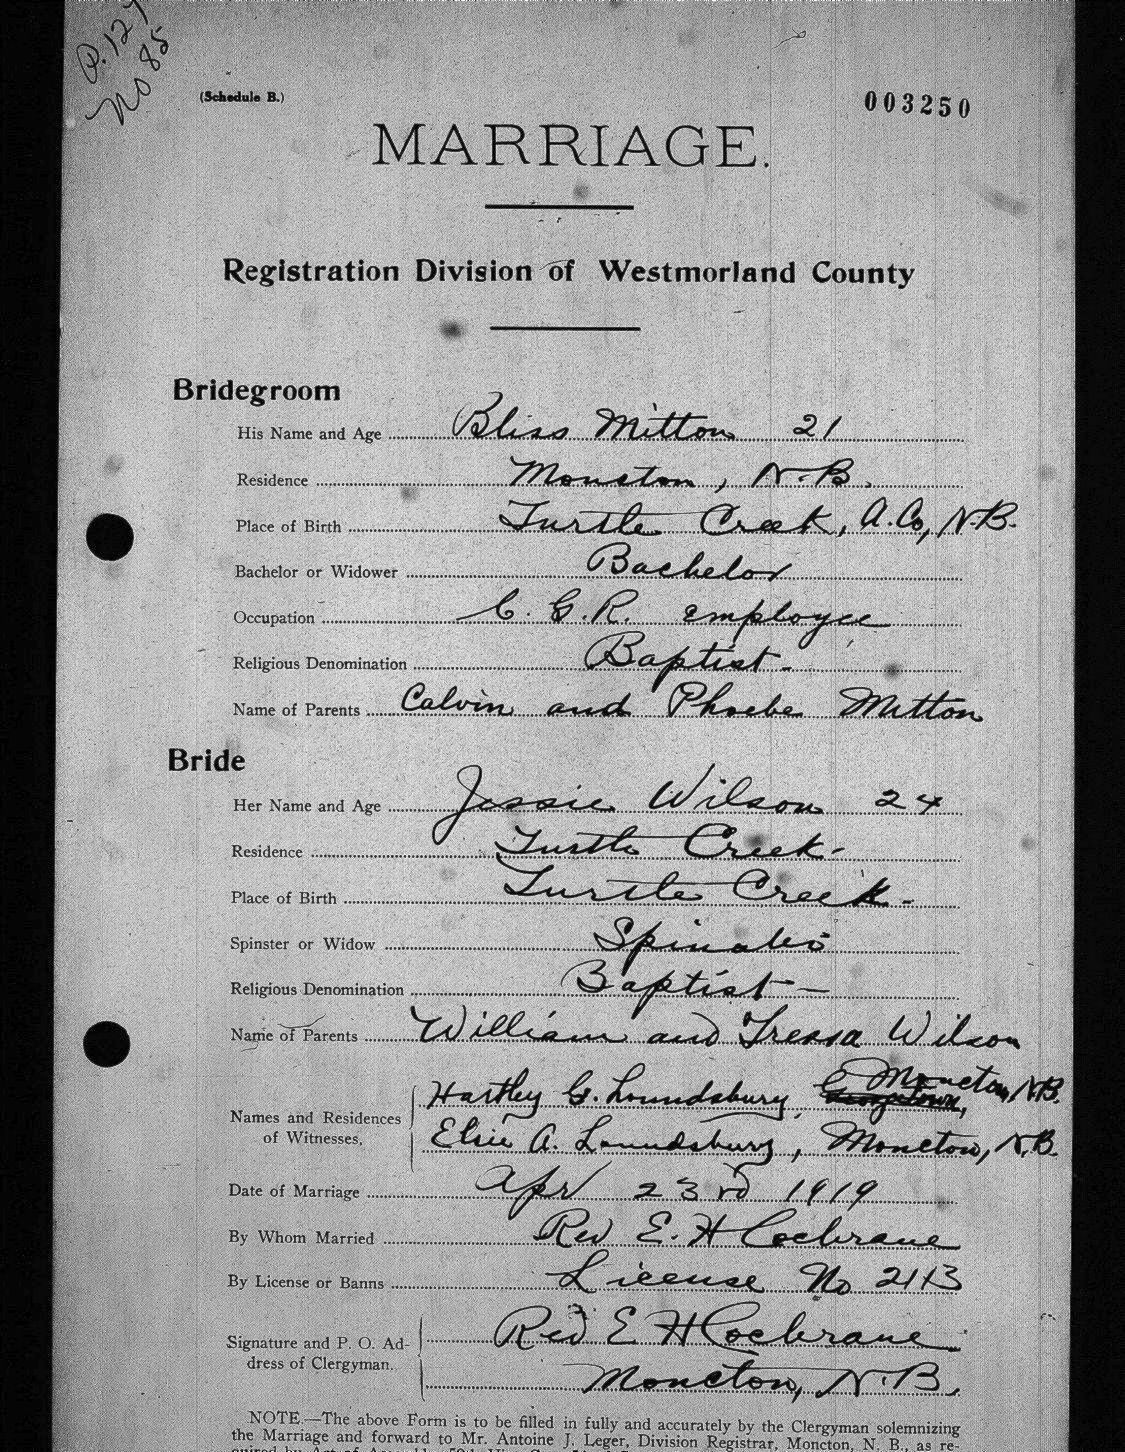 P. 127
No 85
(Schedule B.)
003250
MARRIAGE.
Registration Division of Westmorland County
Bridegroom
His Name and Age Bliss Mitton 21
Residence Moncton, N.B.
Place of Birth Turtle Creek, A.Co, N.B.
Bachelor or Widower Bachelor
Occupation C.G.R. employee
Religious Denomination Baptist-
Name of Parents Calvin and Phoebe Mitton
Bride
Her Name and Age Jessie Wilson 24
Residence Turtle Creek-
Place of Birth Turtle Creek-
Spinster or Widow
Religious Denomination Baptist-
Name of Parents William and Tressa Wilson
Names and Residences of Witnesses, Hartley G. Loundsbury, Georgetown, Moncton, N.B.
Elsie A. Loundsbury, Moncton, N.B.
Date of Marriage Apr 23rd 1919
By Whom Married Rev E. H Cochrane
By License or Banns License No 2113
Signature and P. O. Address of Clergyman. Rev E H Cochrane
Moncton, N.B.
NOTE.—The above Form is to be filled in fully and accurately by the Clergyman solemnizing
the Marriage and forward to Mr. Antoine J. Leger, Division Registrar, Moncton, N. B., as re-